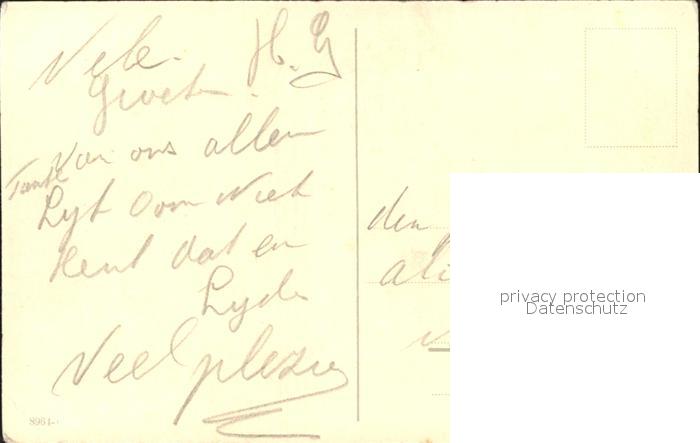 Vele H. G
Groeten.
Van ons allen
Tante
Lyt Oom Niet
Kent dat en
Lyde
Veel plezier
8961-
den
ali
privacy protection
Datenschutz